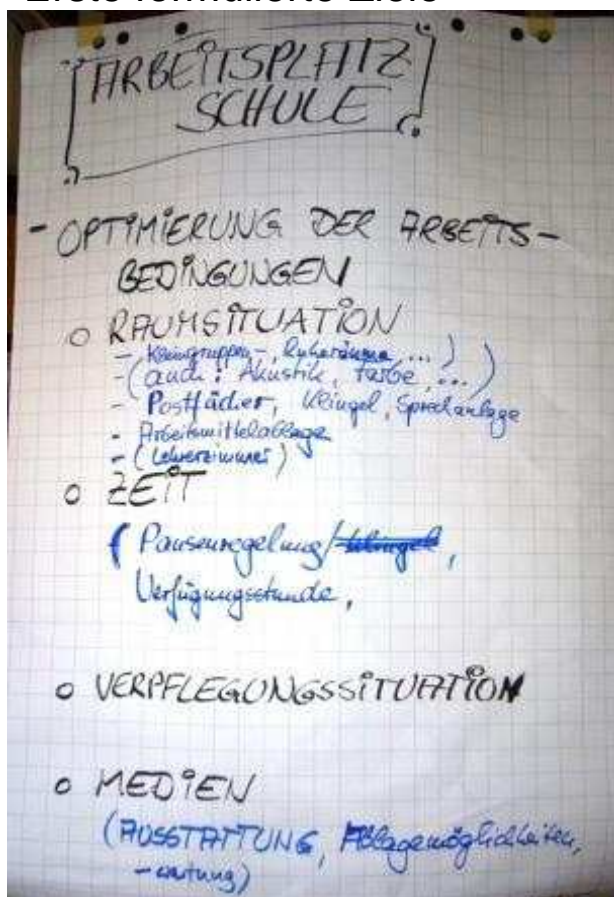 Erste formulierte Ziele
ARBEITSPLATZ
SCHULE
- OPTIMIERUNG DER ARBEITS-
BEDINGUNGEN
o RAUMSITUATION
- Kleingruppen-, Ruheräume, ...)
- (auch: Akustik, Farbe, ...)
- Postfächer, Klingel, Sprechanlage
- Arbeitsmittelablage
- (Lehrerzimmer)
o ZEIT
( Pausenregelung/klingel,
Verfügungsstunde,
o VERPFLEGUNGSSITUATION
o MEDIEN
(AUSSTATTUNG, Ablagemöglichkeiten,
-wartung)